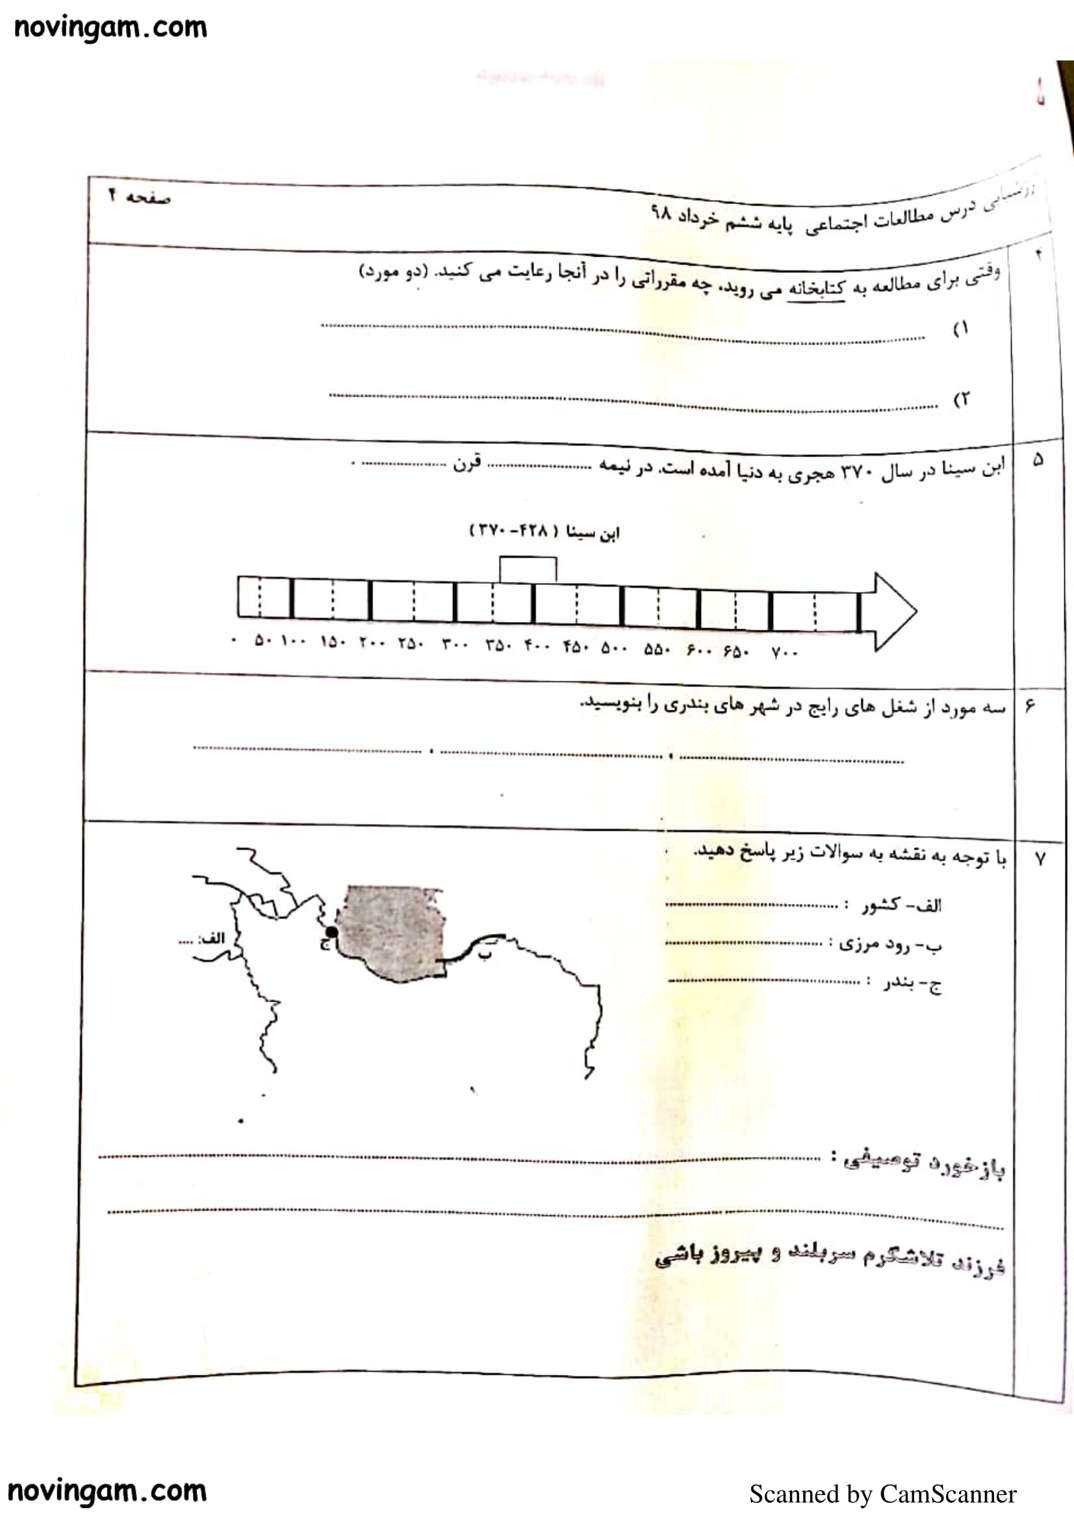 novingam.com
ارزشیابی درس مطالعات اجتماعی پایه ششم خرداد ۹۸
صفحه ۲
۴
وقتی برای مطالعه به کتابخانه می روید، چه مقرراتی را در آنجا رعایت می کنید. (دو مورد)
۱) ........................
۲) ........................
۵
ابن سینا در سال ۳۷۰ هجری به دنیا آمده است. در نیمه ............ قرن ............ .
ابن سینا (۴۲۸-۳۷۰)
۰ ۵۰ ۱۰۰ ۱۵۰ ۲۰۰ ۲۵۰ ۳۰۰ ۳۵۰ ۴۰۰ ۴۵۰ ۵۰۰ ۵۵۰ ۶۰۰ ۶۵۰ ۷۰۰
۶
سه مورد از شغل های رایج در شهر های بندری را بنویسید.
............ ، ............ ، ............
۷
با توجه به نقشه به سوالات زیر پاسخ دهید.
الف- کشور : ............
ب- رود مرزی : ............
ج- بندر : ............
الف: ....
ج
ب
بازخورد توصیفی : ............
فرزند تلاشگرم سربلند و پیروز باشی
novingam.com
Scanned by CamScanner